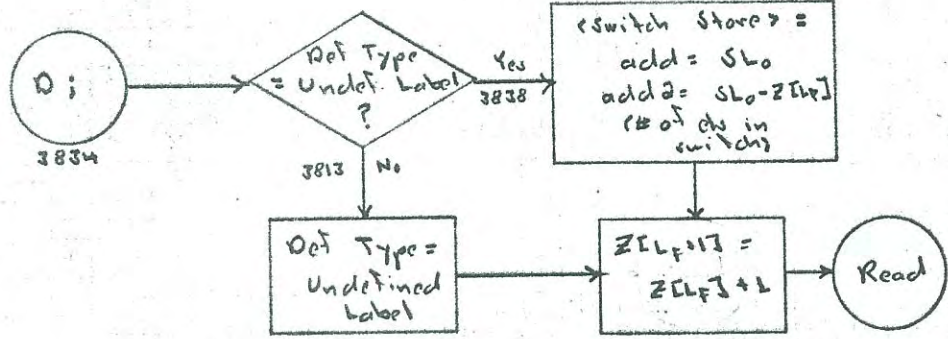 D ;
3834
Def Type
= Undef. Label
?
Yes
3838
3813 No
<Switch Store> =
add = SL₀
add2 = SL₀-Z[LF]
(# of els in
switch)
Def Type =
Undefined
Label
Z[LF+1] =
Z[LF] + 1
Read